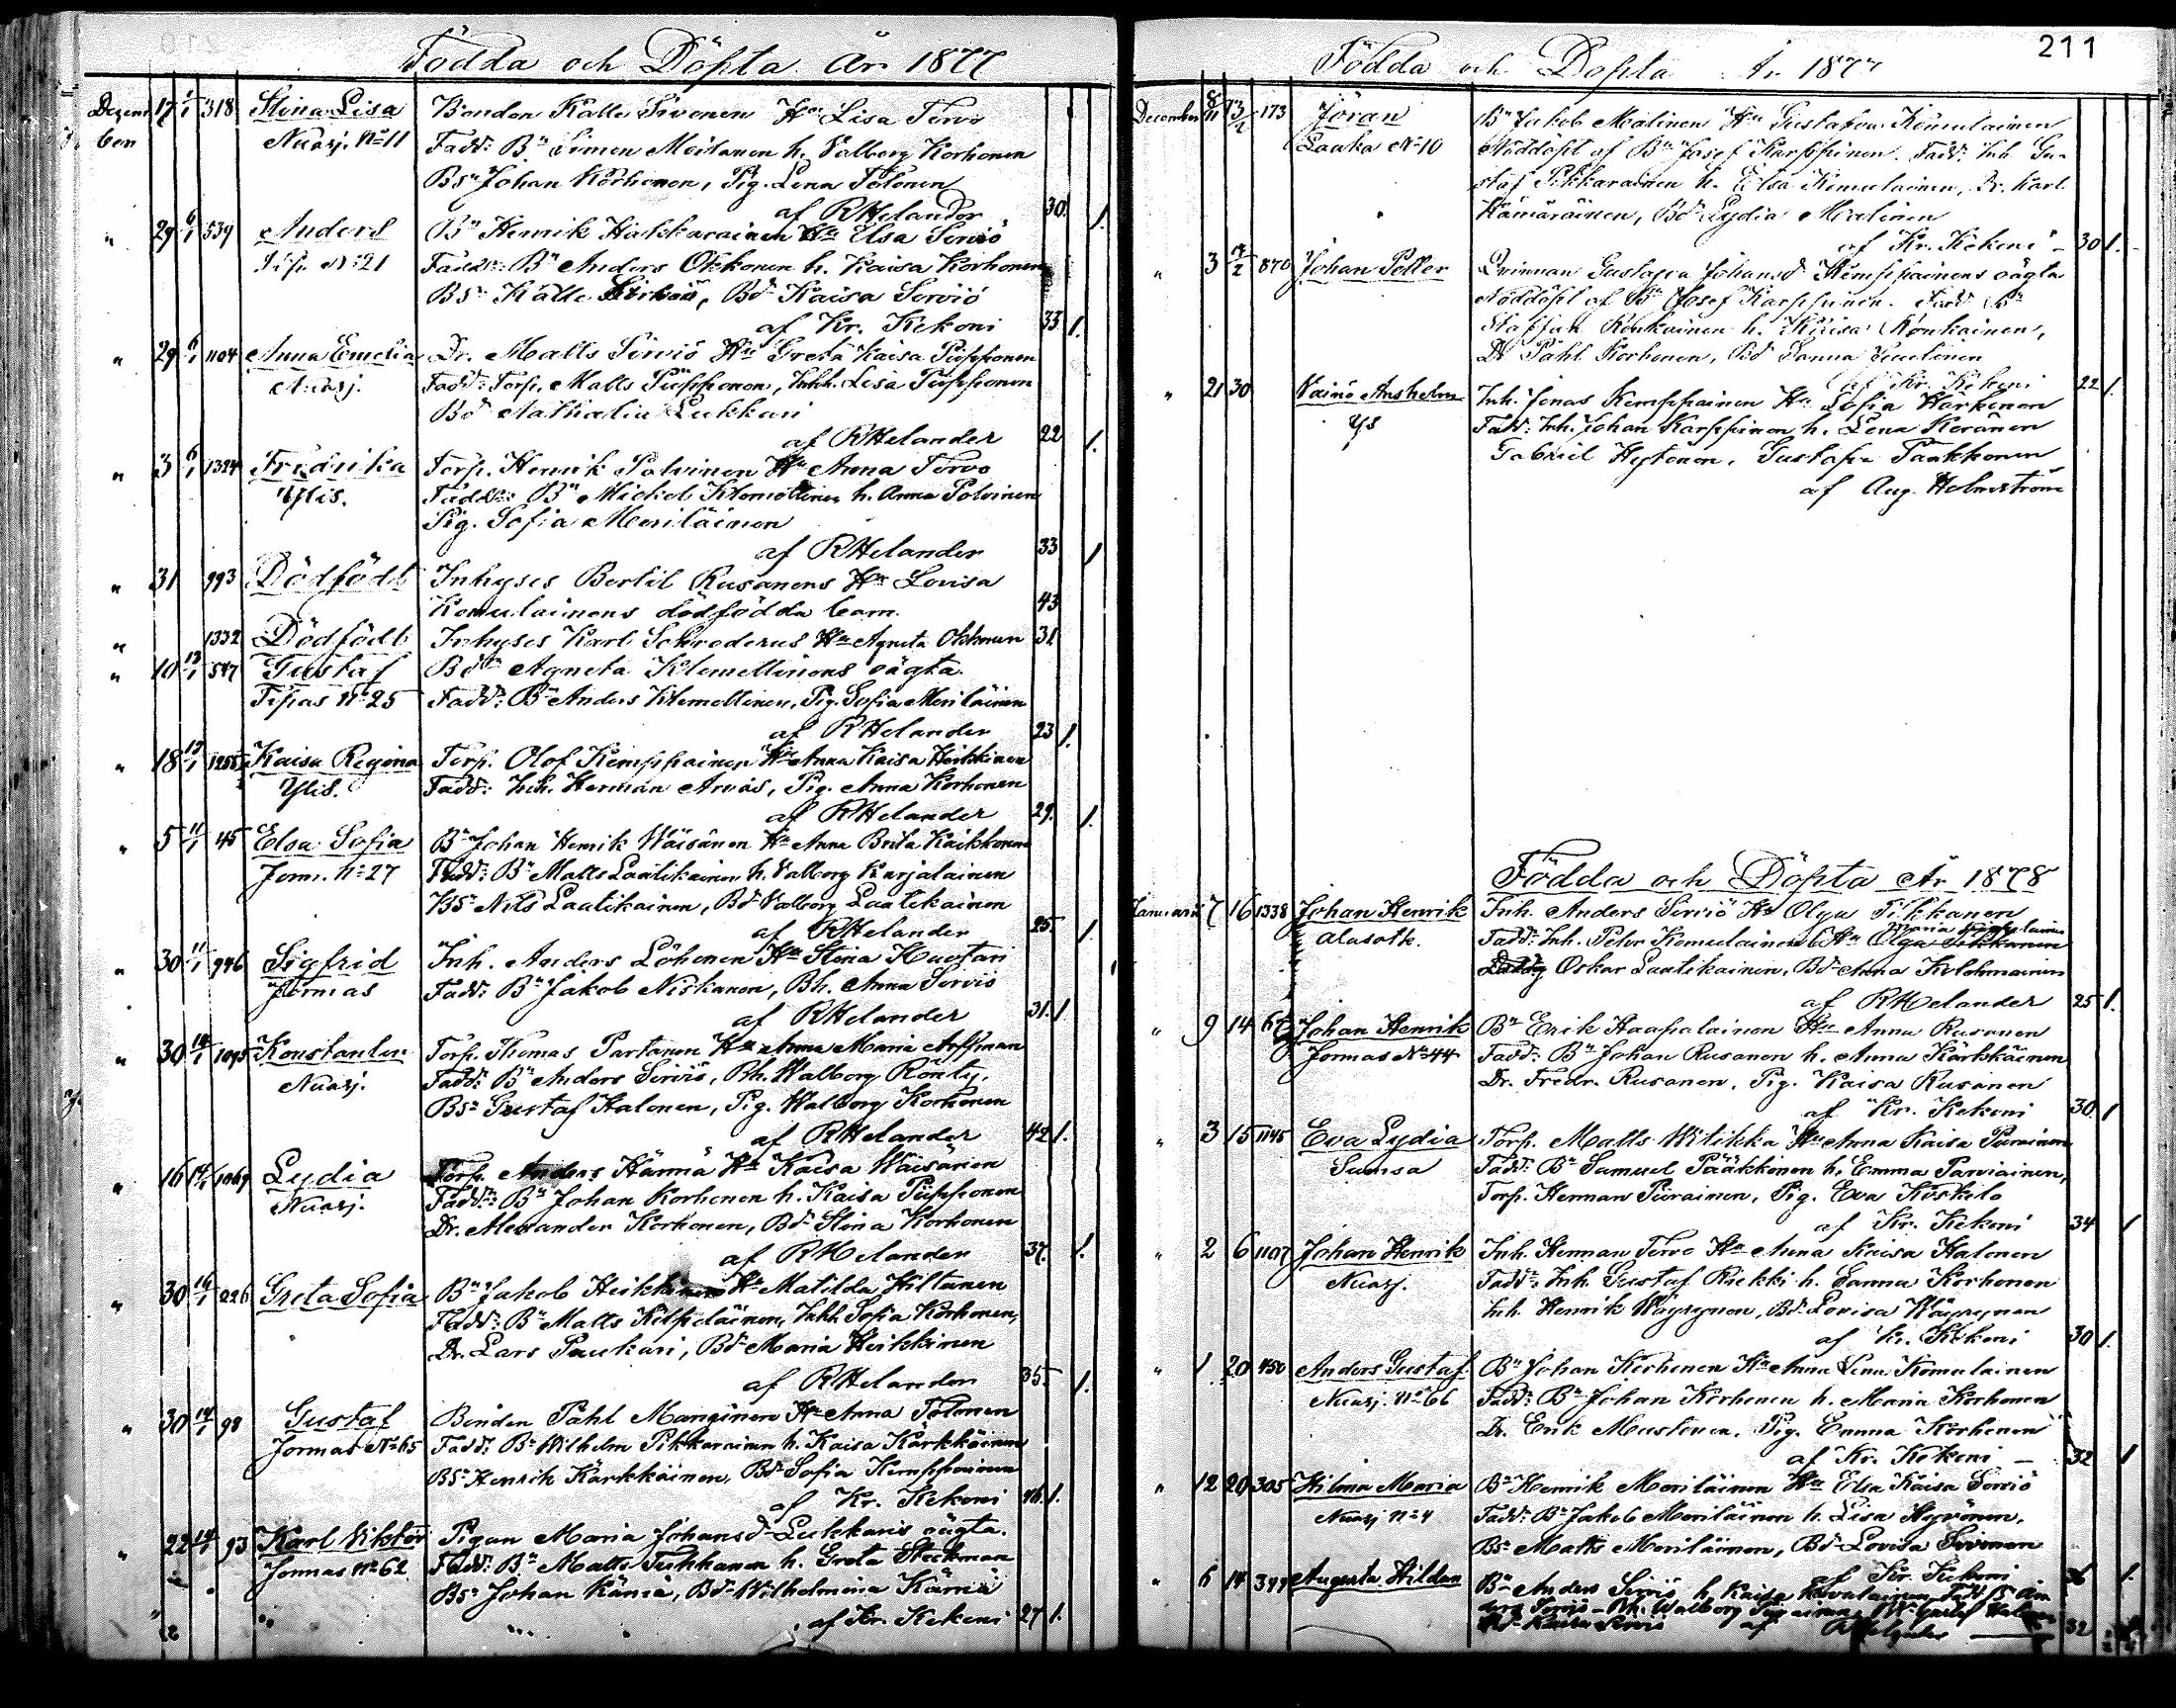 Födda och Döpta År 1877
Dezember 17 1/1 318 Stina Lisa Bonden Kalle Sivonen Hu Lisa Tervo
Nuasj. No 11 Fadd: Bn Simon Moilanen h. Valborg Korhonen
Bsn Johan Korhonen, Pig. Lena Tolonen
af RHelander 30. 1.
" 29 6/1 539 Anders Bn Henrik Hakkarainen Hu Elsa Serviö
Tip. No 21 Fadd: Bn Anders Okkonen h. Kaisa Korhonen
Bsn Kalle, Bdr Kaisa Serviö
af Kr. Kekoni 33 1.
" 29 6/1 1104 Anna Emelia Dr. Matts Serviö Hu Greta Kaisa Piipponen
Nuasj. Fadd: Torp. Matts Piipponen, Inhh. Lisa Piipponen
Bdr Nathalia Lukkari
af RHelander 22 1.
" 3 6/1 1324 Fredrika Torp. Henrik Polvinen Hu Anna Tervo
Ylis. Fadd: Bn Mickel Klemettinen h. Anna Polvinen
Pig. Sofia Meriläinen
af RHelander 33 1
" 31 993 Dödfödt Inhyses Bertil Rusanens Hu Lovisa
Komulainens dödfödda barn. 43
" 1332 Dödfödt Inhyses Karl Schroderus Hu Agneta Okkonen 31
" 10 13/1 547 Gustaf Bdr Agneta Klemettinens oägta.
Tipas No 25 Fadd: Bn Anders Klemettinen, Pig. Sofia Meriläinen
af RHelander 23 1.
" 18 13/1 1255 Kaisa Regina Torp. Olof Kemppainen Hu Anna Kaisa Heikkinen
Ylis. Fadd: Inh. Herman Arvas, Pig. Anna Korhonen
af RHelander 29. 1.
" 5 11/1 45 Elsa Sofia Bn Johan Henrik Wäisänen Hu Anna Brita Kaikkonen
Jorm. No 27 Fadd: Bn Matts Laatikainen h. Valborg Karjalainen
Bsn Nils Laatikainen, Bdr Valborg Laatikainen
af RHelander 25. 1.
" 30 11/1 946 Sigfrid Inh. Anders Löhönen Hu Stina Huotari
Jormas Fadd: Bn Jakob Niskanen, Bh. Anna Serviö
af RHelander 31. 1.
" 30 14/1 1095 Konstantin Torp. Thomas Partanen Hu Anna Maria Aeffman
Nuasj. Fadd: Bn Anders Serviö, Bh. Walborg Rönty,
Bsn Gustaf Halonen, Pig. Walborg Korhonen
af RHelander 42 1.
" 16 14/1 1069 Lydia Torp. Anders Härmä Hu Kaisa Wäisänen
Nuasj. Fadd: Bn Johan Korhonen h. Kaisa Piipponen
Dr. Alexander Korhonen, Bdr Stina Korhonen
af RHelander 37. 1.
" 30 16/1 226 Greta Sofia Bn Jakob Heikkinen Hu Matilda Hiltunen
Fadd: Bn Matts Kilpeläinen, Inhh. Sofia Korhonen,
Dr. Lars Paukari, Bdr Maria Heikkinen
af RHelander 35. 1.
" 30 14/1 98 Gustaf Bonden Påhl Manginen Hu Anna Tolonen
Jormas No 65 Fadd: Bn Wilhelm Pikkarainen h. Kaisa Karkkainen
Bsn Henrik Kärkkäinen, Bdr Sofia Kemppainen
af Kr. Kekoni 46 1.
" 22 14/1 93 Karl Viktor Pigan Maria Johansdr Lukkaris oägta.
Jormas No 62 Fadd: Bn Matts Tuhkanen h. Greta Stockman
Bsn Johan Kämä, Bdr Wilhelmina Kämä
af Kr. Kekoni 27 1.
211
Födda och Döpta År 1877
December 8/11 13/2 173 Jöran Bn Jakob Malinen Hu Gustafva Komulainen
Laaka No 10 Nöddöpt af Bn Josef Karppinen. Fadd: Inh. Gu-
staf Pikkarainen h. Elsa Komulainen, Dr. Karl
Hämäräinen, Bdr Lydia Malinen
af Kr. Kekoni 30 1.
" 3 14/2 870 Johan Petter Qvinnan Gustafva Johansdr Kemppainens oägta
Nöddöpt af Bn Josef Karppinen. Fadd: Bn
Staffan Ronkainen h. Kaisa Ronkainen,
Dr Påhl Korhonen, Bdr Sanna Juntunen
af Kr. Kekoni 22 1.
" 21 30 Vainö Anshelm Inh. Jonas Kemppainen Hu Sofia Härkönen
Ys Fadd: Inh. Johan Karppinen h. Lena Keränen
Gabriel Hytönen, Gustafva Paakkonen
af Aug. Holmström
Födda och Döpta År 1878
Januari 7 16 1338 Johan Henrik Inh. Anders Serviö Hu Olga Pikkanen
Alasotk. Fadd: Inh. Petter Komulainen Hu Olga Pikkanen
Oskar Laatikainen, Bdr Anna Kolehmainen
af RHelander 25 1.
" 9 14 67 Johan Henrik Bn Erik Haapalainen Hu Anna Rusanen
Jormas No 44 Fadd: Bn Johan Rusanen h. Anna Kärkkäinen
Dr. Fredr. Rusanen, Pig. Kaisa Rusanen
af Kr. Kekoni 30. 1
" 3 15 1145 Eva Lydia Torp. Matts Witikka Hu Anna Kaisa Parviainen
Sumsa Fadd: Bn Samuel Pääkkönen h. Emma Parviainen,
Torp. Herman Piirainen, Pig. Eva Koskelo
af Kr. Kekoni 34 1
" 2 6 1107 Johan Henrik Inh. Herman Tervo Hu Anna Kaisa Halonen
Nuasj. Fadd: Inh. Gustaf Riekki h. Sanna Korhonen
Inh. Henrik Wäyrynen, Bdr Lovisa Wäyrynen
af Kr. Kekoni 30 1.
" 1 20 450 Anders Gustaf Bn Johan Korhonen Hu Anna Lena Komulainen
Nuasj. No 66 Fadd: Bn Johan Korhonen h. Maria Korhonen
Dr. Erik Mustonen, Pig. Emma Korhonen
af Kr. Kekoni 32 1
" 12 20 305 Hilma Maria Bn Henrik Meriläinen Hu Elsa Kaisa Serviö
Nuasj No 4 Fadd: Bn Jakob Meriläinen h. Lisa Hyvönen,
Bsn Matts Meriläinen, Bdr Lovisa Sivonen
af Kr. Kekoni 36 1.
" 6 14 399 Augusta Hildur Bn Anders Serviö h. Kaisa Kovalainen Fadd: Bn An-
ders Serviö - Bh. Walborg Bsn Gustaf Halonen
Bdr Kaisa Serviö af RHelander 32